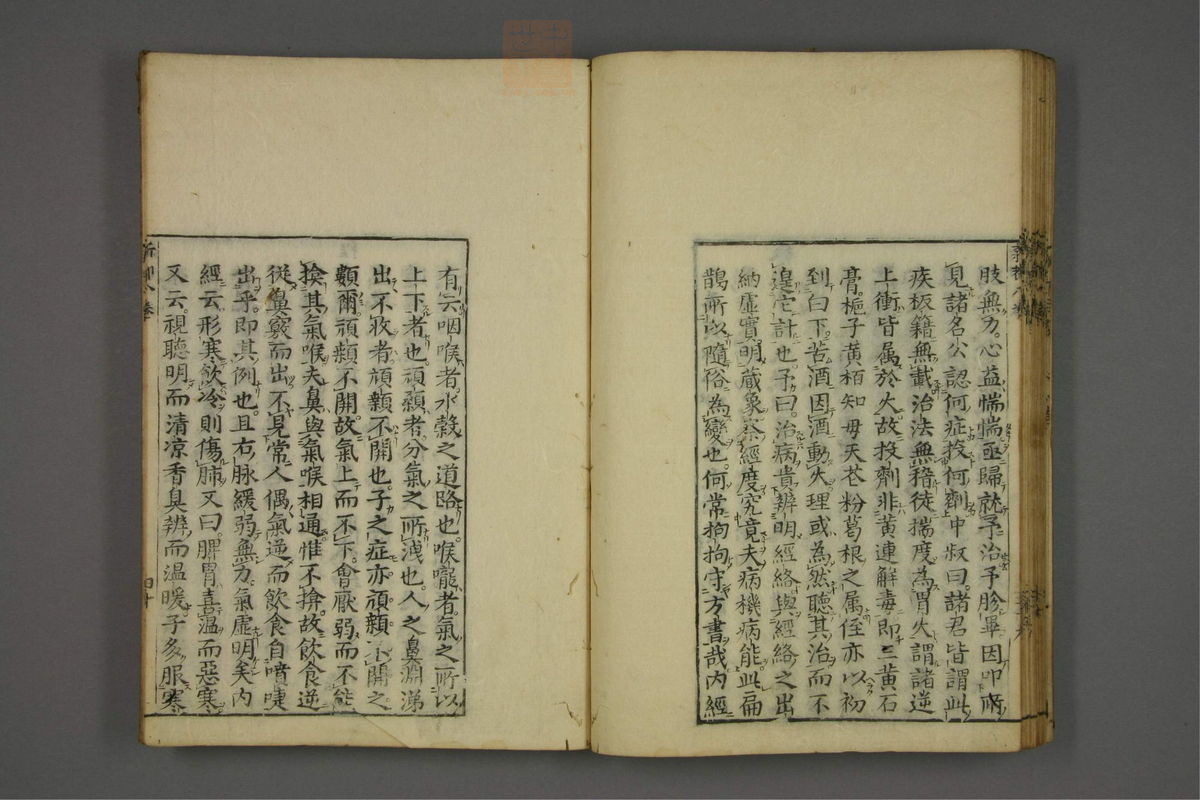 肢無力心益惴惴亟歸就予治予胗畢因叩所
見諸名公認何症投何劑中叔曰諸君皆謂此
疾板籍無載治法無稽徒揣度為胃火謂諸逆
上衝皆属於火故投劑非黃連解毒即三黃石
膏梔子黃栢知毋天苍粉葛根之属侄亦以初
到白下苦酒因酒動火理或為然聽其治而不
遑它計也予曰治病貴辨明經絡與經絡之出
納虛實明藏象察經度究竟夫病機病能此扁
鵲所以隨俗為變也何常拘拘守方書哉內經
有云咽喉者水穀之道路也喉嚨者氣之所以
上下者也頑顙者分氣之所洩也人之鼻淵涕
出不收者頑顙不開也子之症亦頑顙不開之
類爾頑顙不開故氣上而不下會厭弱而不能
掩其氣喉夫鼻與氣喉相通惟不揜故飲食逆
從鼻竅而出不見常人偶氣逆而飲食自噴嚏
出乎即其例也且右脉緩弱無力氣虛明矣內
經云形寒飲冷則傷肺又曰脾胃喜溫而惡寒
又云視聽明而清凉香臭辨而溫暖子多服寒